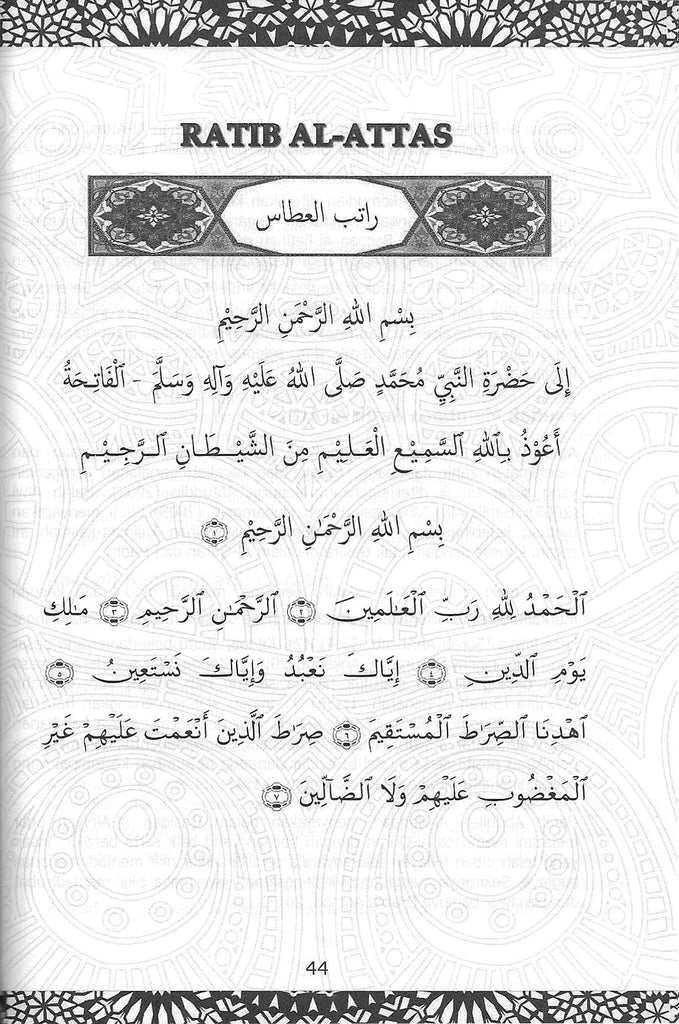 RATIB AL-ATTAS
راتب العطاس
بِسْمِ اللهِ الرَّحْمَنِ الرَّحِيْمِ
إِلَى حَضْرَةِ النَّبِيِّ مُحَمَّدٍ صَلَّى اللهُ عَلَيْهِ وَآلِهِ وَسَلَّمَ - اَلْفَاتِحَةُ
أَعُوْذُ بِاللهِ السَّمِيْعِ الْعَلِيْمِ مِنَ الشَّيْطَانِ الرَّجِيْمِ
بِسْمِ اللهِ الرَّحْمَٰنِ الرَّحِيْمِ ١
ٱلْحَمْدُ لِلَّهِ رَبِّ ٱلْعَٰلَمِينَ ٢ ٱلرَّحْمَٰنِ ٱلرَّحِيمِ ٣ مَٰلِكِ
يَوْمِ ٱلدِّينِ ٤ إِيَّاكَ نَعْبُدُ وَإِيَّاكَ نَسْتَعِينُ ٥
ٱهْدِنَا ٱلصِّرَٰطَ ٱلْمُسْتَقِيمَ ٦ صِرَٰطَ ٱلَّذِينَ أَنْعَمْتَ عَلَيْهِمْ غَيْرِ
ٱلْمَغْضُوبِ عَلَيْهِمْ وَلَا ٱلضَّآلِّينَ ٧
44